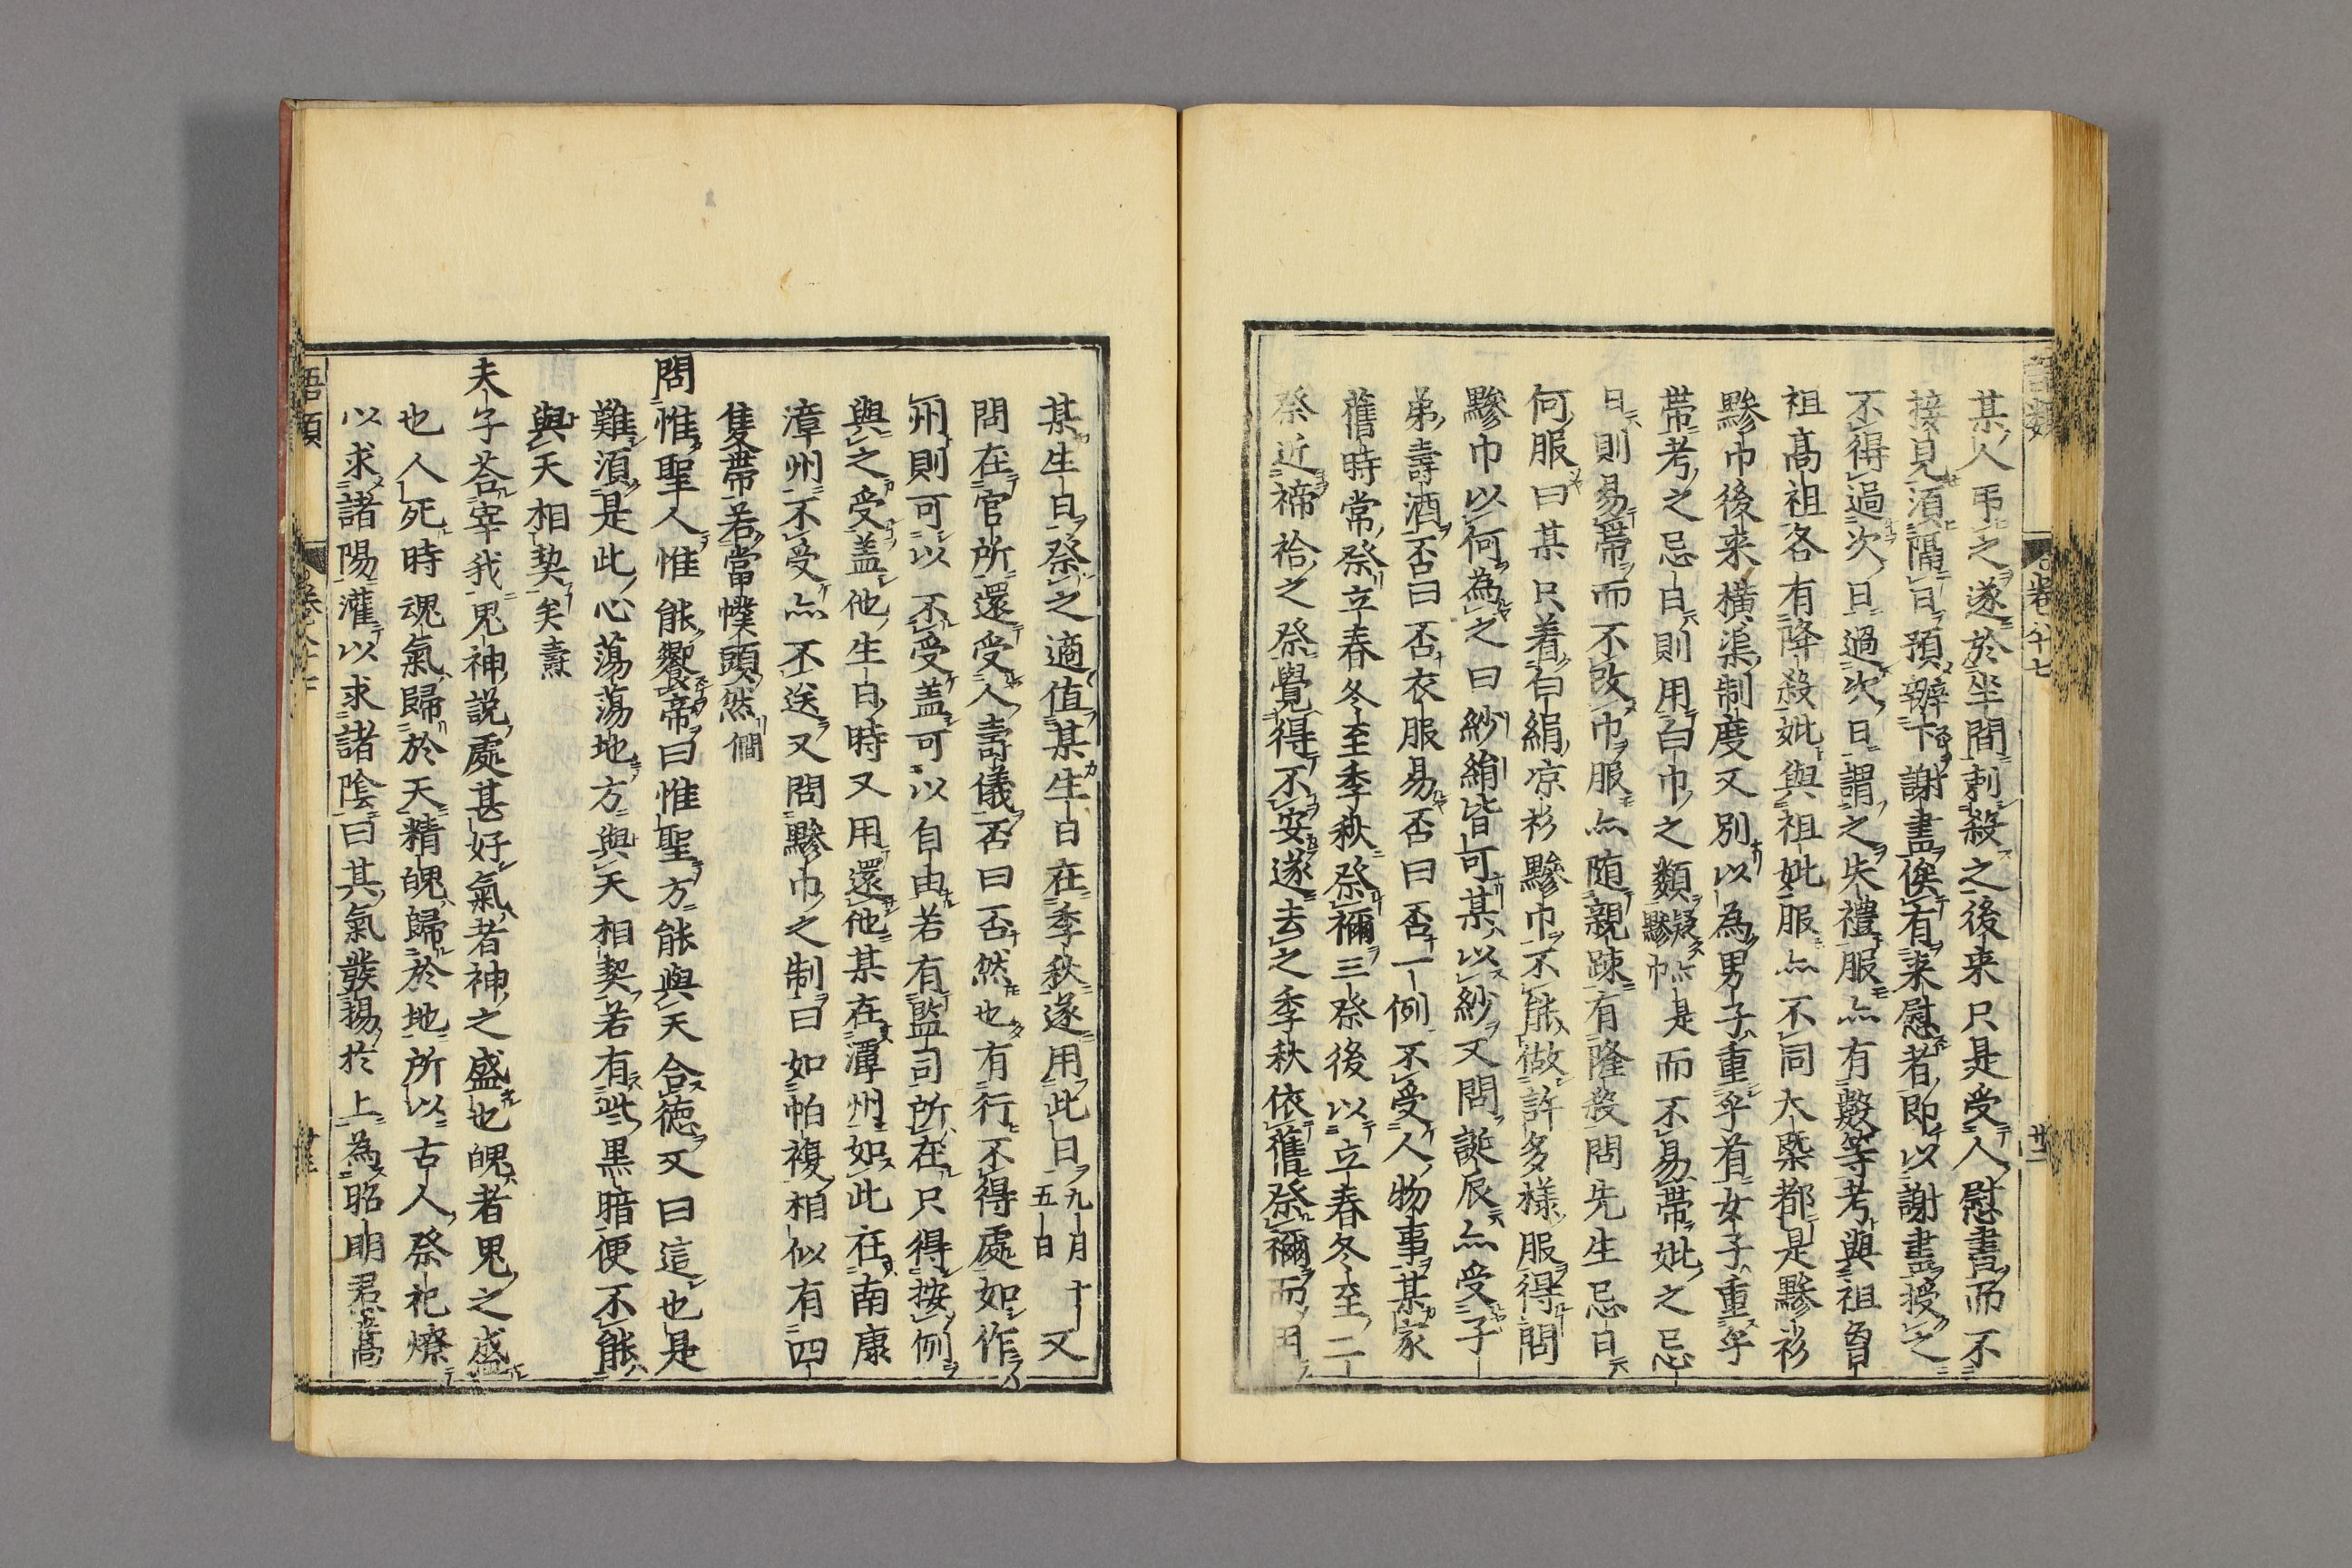 語類 卷八十七 廿二
某人弔之遂於坐間刺殺之後来只是受人慰書而不
接見須隔日預辦下謝書俟有来慰者即以謝書授之
不得過次日過次日謂之失禮服亦有數等考與祖曾
祖髙祖各有降殺妣與祖妣服亦不同大槩都是黲衫
黲巾後来横渠制度又别以為男子重乎首女子重乎
帶考之忌日則用白巾之類疑亦黲巾是而不易帶妣之忌
日則易帶而不改巾服亦隨親疎有隆殺問先生忌日
何服曰某只着白絹凉衫黲巾不能做許多様服得問
黲巾以何為之曰紗絹皆可某以紗又問誕辰亦受子
弟壽酒否曰否衣服易否曰否一例不受人物事某家
舊時常祭立春冬至季秋祭禰三祭後以立春冬至二
祭近禘祫之祭覺得不安遂去之季秋依舊祭禰而用
某生日祭之適値某生日在季秋遂用此日九月十五日又
問在官所還受人壽儀否曰否然也有行不得處如作
州則可以不受盖可以自由若有監司所在只得按例
與之受盖他生日時又用還他某在潭州如此在南康
漳州不受亦不送又問黲巾之制曰如帕複相似有四
隻帶若當幞頭然僩
問惟聖人惟能饗帝曰惟聖方能與天合德又曰這也是
難須是此心蕩蕩地方與天相契若有些黒暗便不能
與天相契矣壽
夫子荅宰我鬼神説處甚好氣者神之盛也魄者鬼之盛
也人死時魂氣歸於天精魄歸於地所以古人祭祀燎
以求諸陽灌以求諸陰曰其氣發揚於上為昭明君蒿
語類 卷八十七